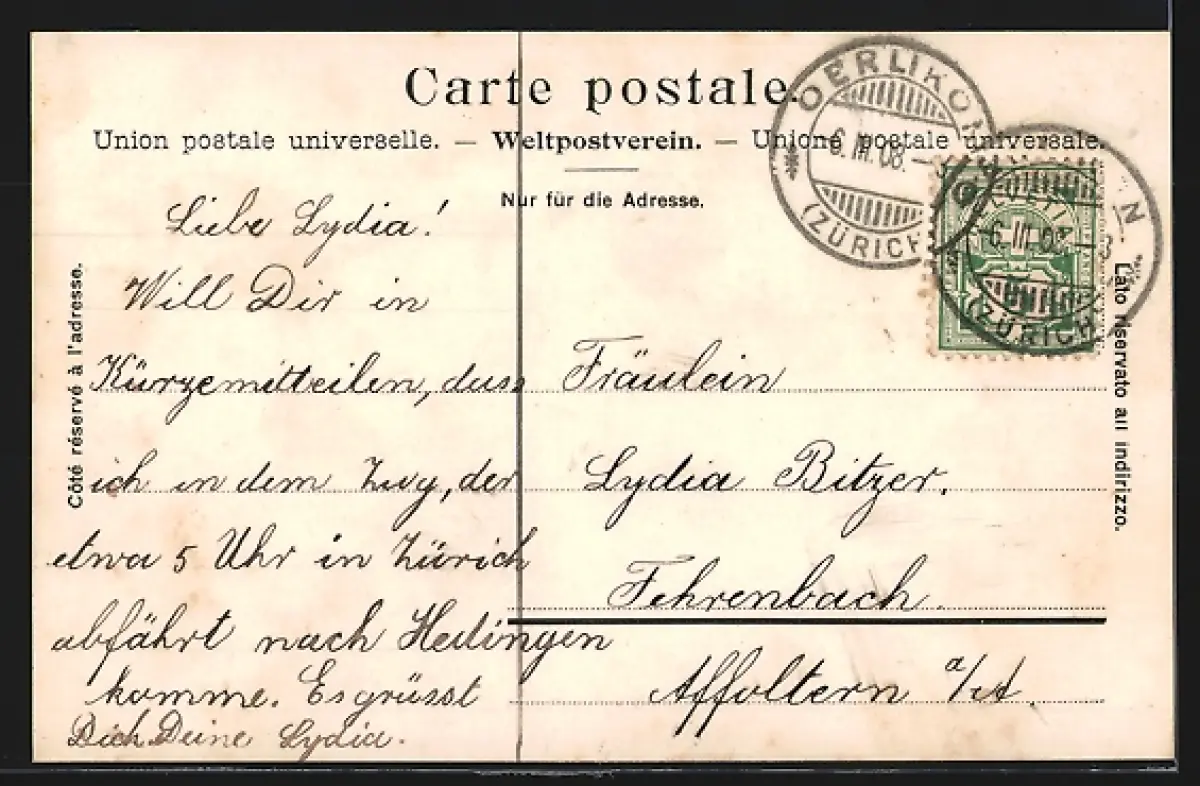 Carte postale.
Union postale universelle. — Weltpostverein. — Unione postale universale.
Nur für die Adresse.
Côté réservé à l'adresse.
Lato riservato all indirizzo.
OERLIKON
6.III.08.—
(ZÜRICH)
6.III.08.—3
(ZÜRICH)
HELVETIA
Liebe Lydia!
Will Dir in
Kürze mitteilen, dass
ich in dem Zug, der
etwa 5 Uhr in Zürich
abfährt nach Hedingen
komme. Es grüsst
Dich Deine Lydia.
Fräulein
Lydia Bitzer.
Fehrenbach.
Affoltern a/A.